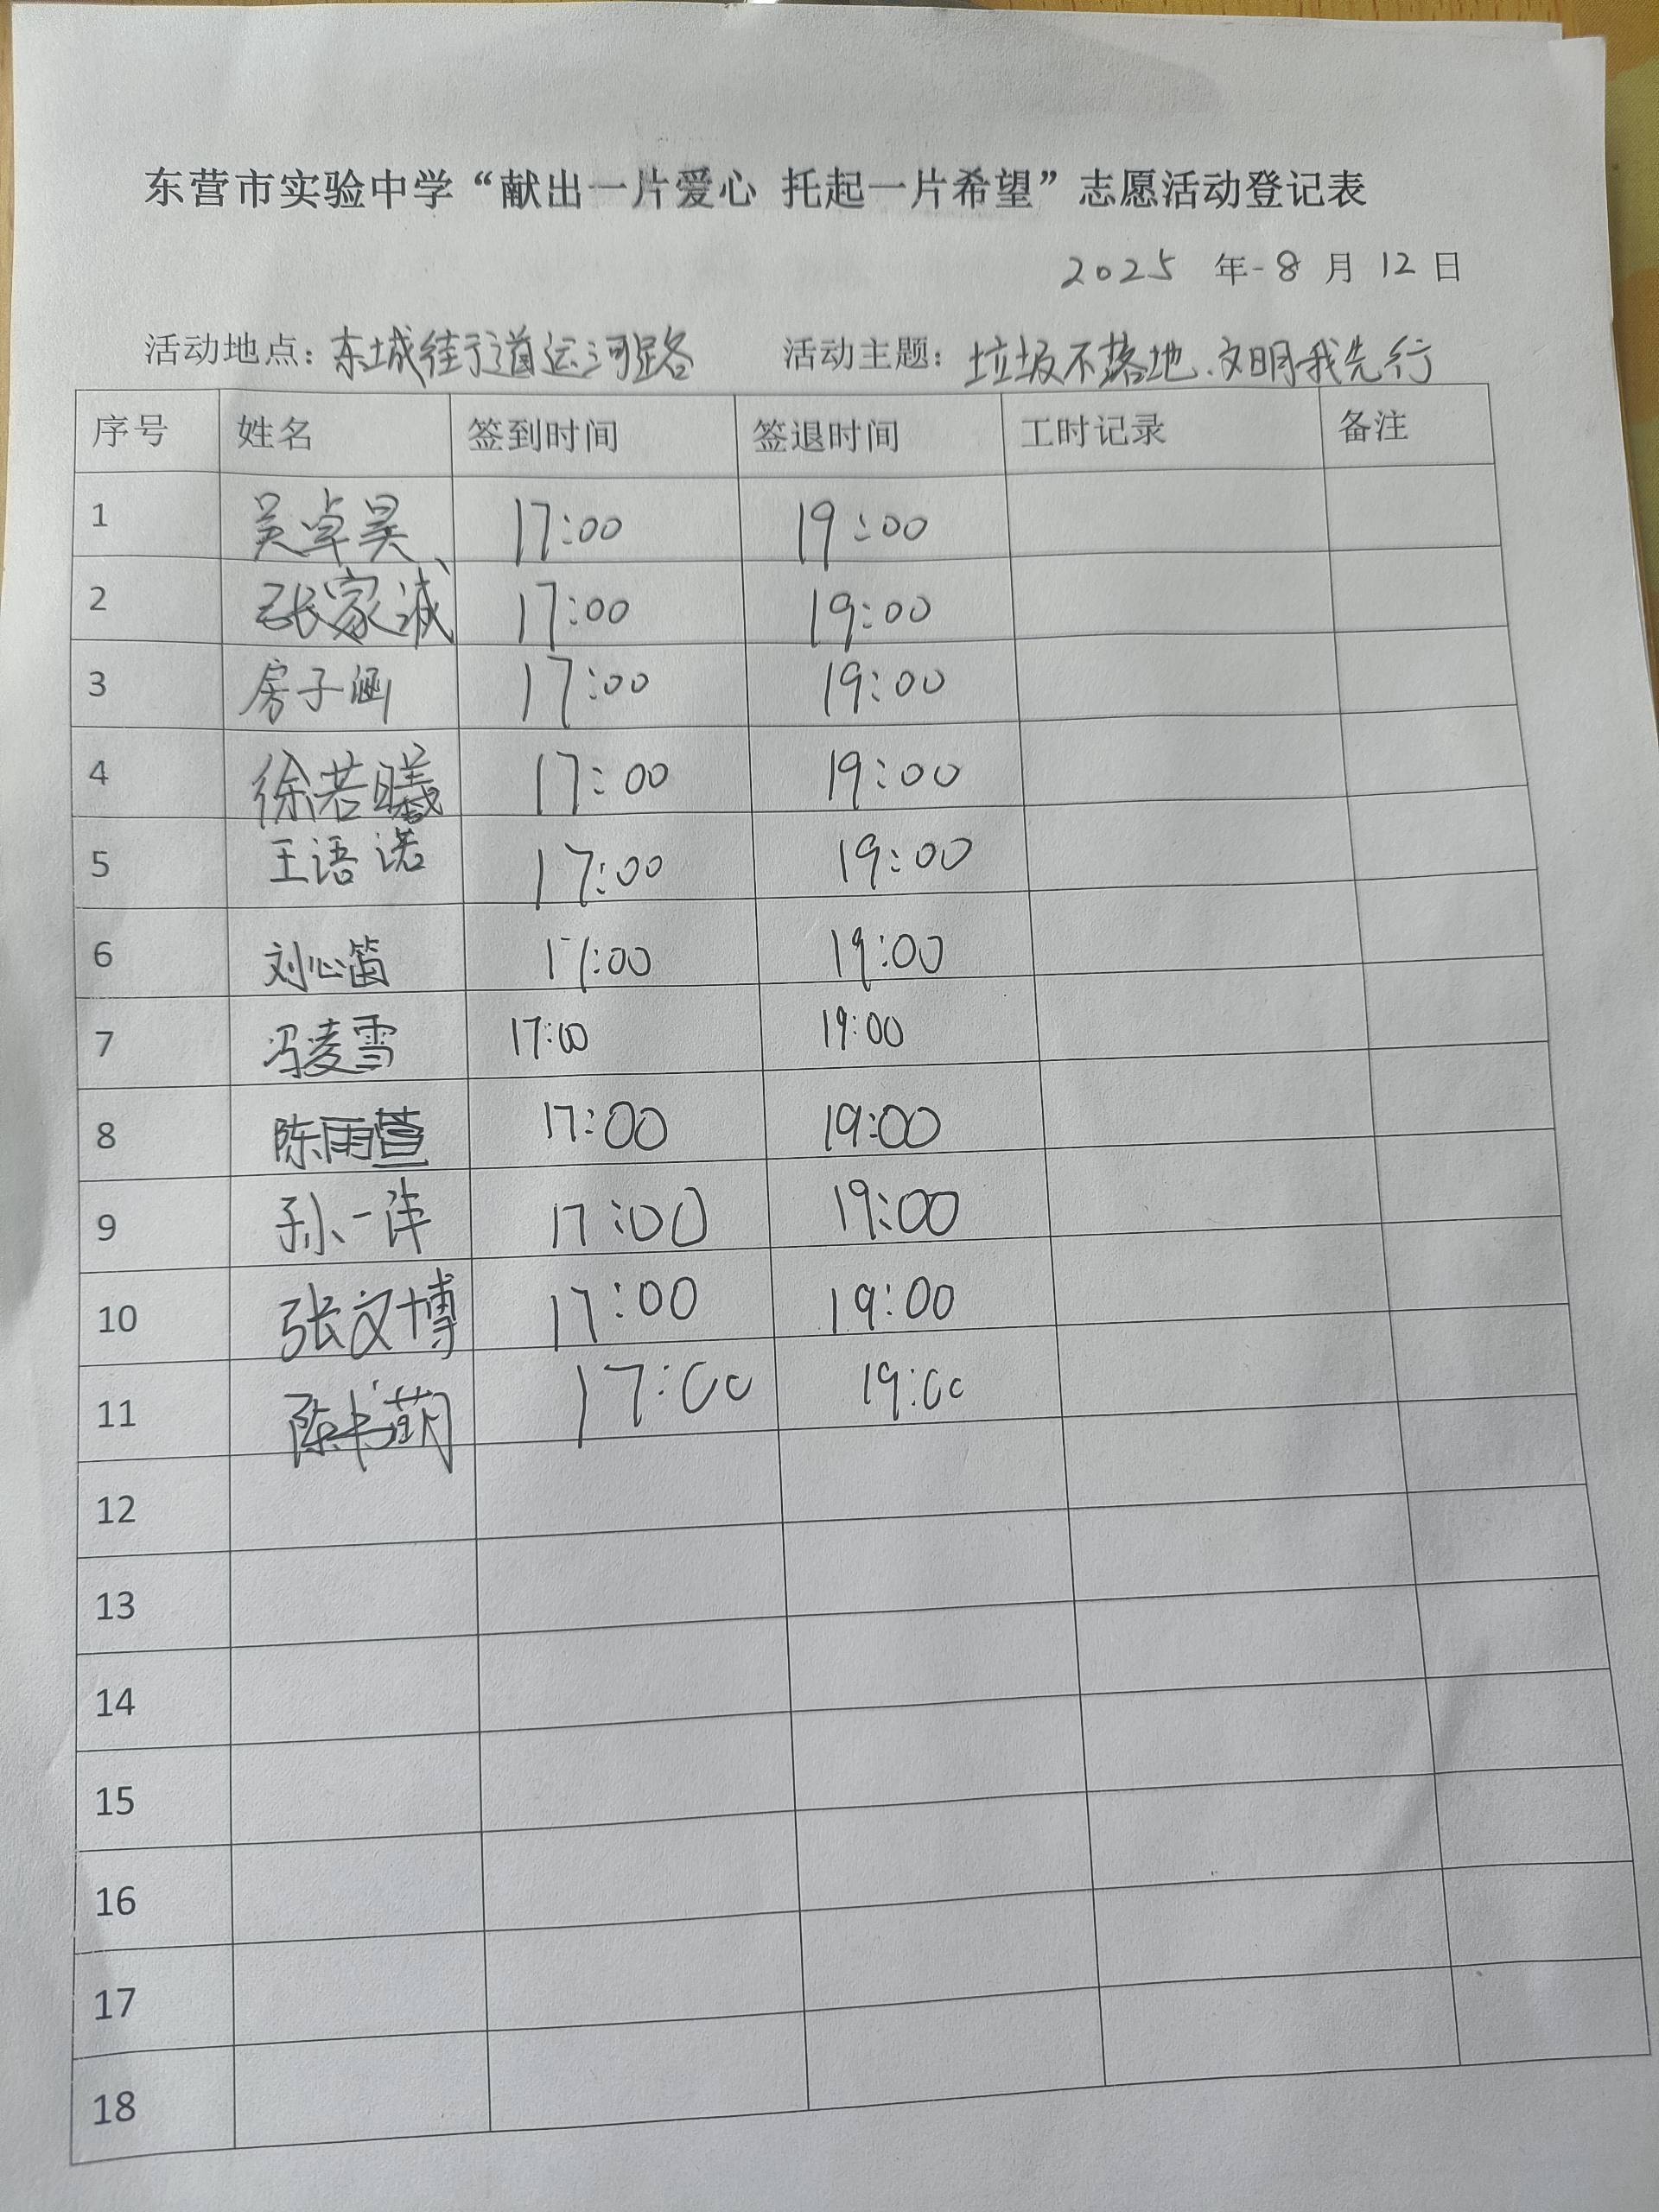 东营市实验中学“献出一片爱心 托起一片希望”志愿活动登记表
2025 年-8 月 12 日
活动地点：东城街道运河路 活动主题：垃圾不落地.文明我先行
序号 姓名 签到时间 签退时间 工时记录 备注
1 吴卓昊 17:00 19:00
2 张家诚 17:00 19:00
3 房子涵 17:00 19:00
4 徐若曦 17:00 19:00
5 王语诺 17:00 19:00
6 刘心笛 17:00 19:00
7 冯凌雪 17:00 19:00
8 陈雨萱 17:00 19:00
9 孙一洋 17:00 19:00
10 张文博 17:00 19:00
11 17:00 19:00
12
13
14
15
16
17
18